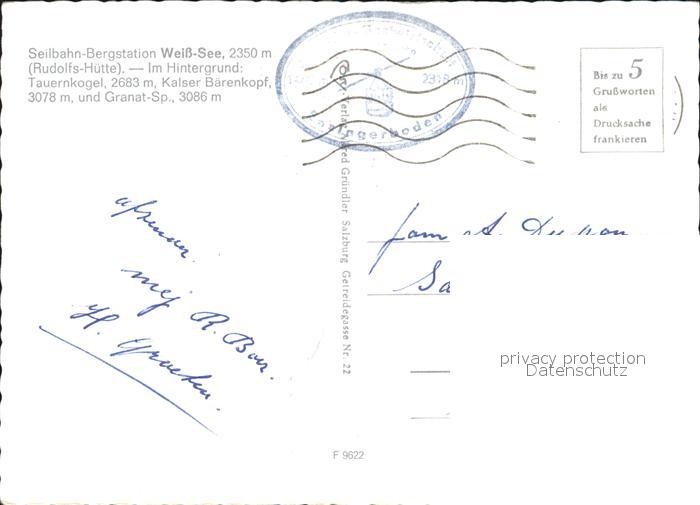 Seilbahn-Bergstation Weiß-See, 2350 m
(Rudolfs-Hütte). — Im Hintergrund:
Tauernkogel, 2683 m, Kalser Bärenkopf,
3078 m, und Granat-Sp., 3086 m
Bis zu 5
Grußworten
als
Drucksache
frankieren
Gründler Salzburg Getreidegasse Nr. 22
mej R. Boer.
H. Groeten.
Fam A.
Sa
privacy protection
Datenschutz
F 9622